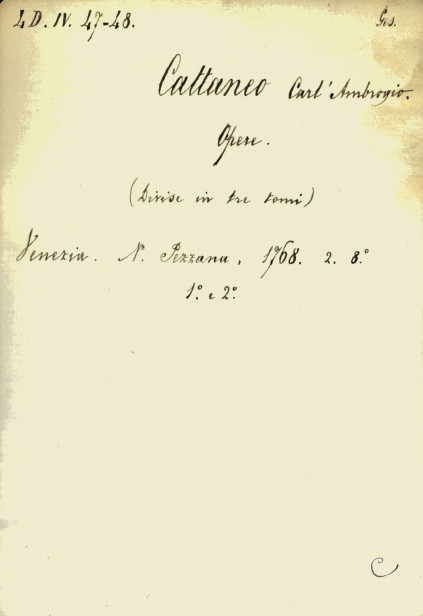 4 D. IV. 47-48. Ges.
Cattaneo Carl'Ambrogio.
Opere.
(Divise in tre tomi)
Venezia. N. Pezzana, 1768. 2. 8.°
1.° e 2.°
C